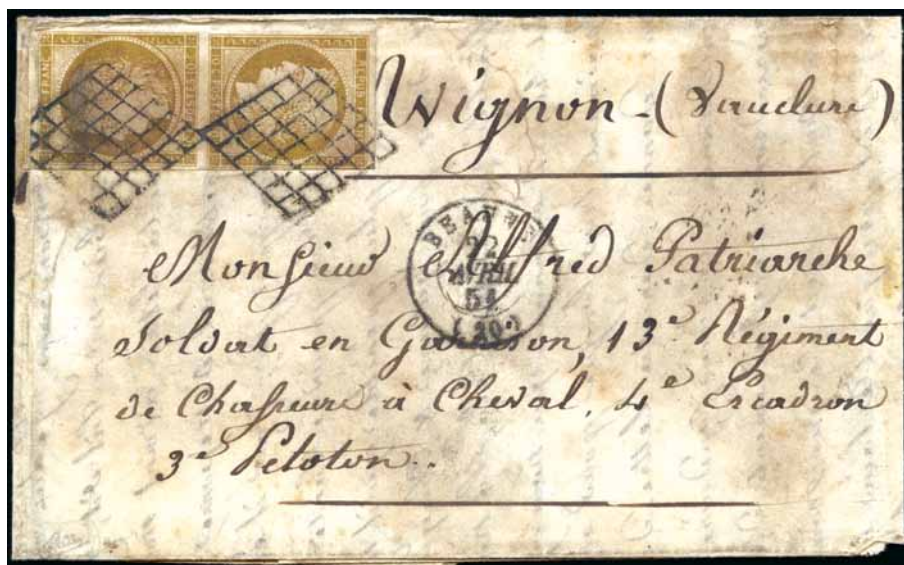 FRANC POSTES
POSTES
Avignon - (Vaucluse)
BEAUNE
22
AVRIL
51
(20)
Monsieur Alfred Patriarche
Soldat en Garnison, 13e Régiment
de Chasseurs à Cheval, 4e Escadron
3e Peloton..